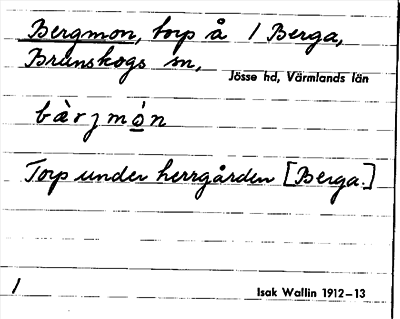 Bergmon, torp å 1 Berga,
Brunskogs sn,
Jösse hd, Värmlands län
bæ̀rjmó̱n
Torp under herrgården [Berga.]
1
Isak Wallin 1912–13